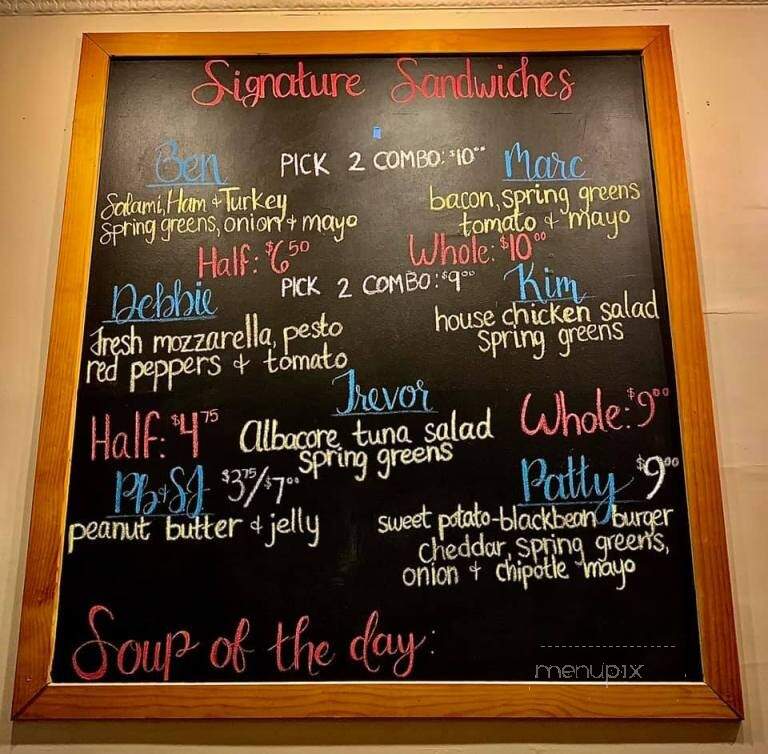 Signature Sandwiches
Ben PICK 2 COMBO: $10⁰⁰ Marc
Salami, Ham + Turkey
Spring greens, onion + mayo
bacon, spring greens
tomato + mayo
Half: $6⁵⁰ Whole: $10⁰⁰
Debbie PICK 2 COMBO: $9⁰⁰ Kim
fresh mozzarella, pesto
red peppers + tomato
house chicken salad
spring greens
Trevor
Half: $4⁷⁵ Albacore tuna salad Whole: $9⁰⁰
spring greens
PB+SJ $3⁷⁵/$7⁰⁰
peanut butter + jelly
Patty $9⁰⁰
sweet potato-blackbean burger
cheddar, spring greens,
onion + chipotle mayo
Soup of the day:
menupix